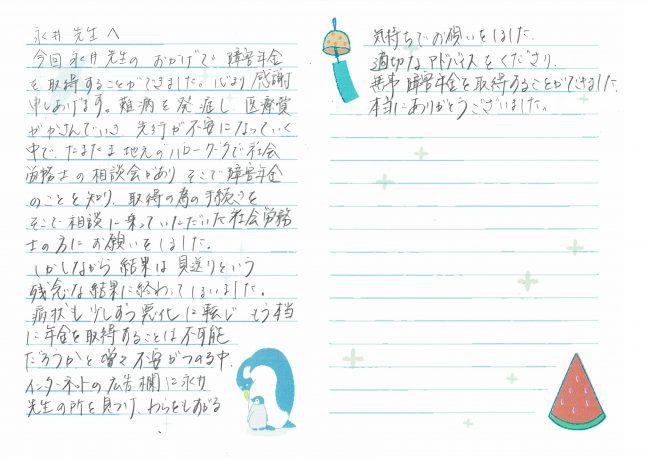 永井先生へ
今回永井先生のおかげで障害年金
を取得することができました。心より感謝
申しあげます。難病を発症し医療費
がかさんでいき先行が不安になっていく
中で、たまたま地元のハローワークで社会
労務士の相談会があり そこで障害年金
のことを知り、取得の為の手続きを
そこで相談に乗っていただいた社会労務
士の方にお願いをしました。
しかしながら結果は見送りという
残念な結果に終わってしまいました。
病状も少しずつ悪化に転じ もう本当
に年金を取得することは不可能
だろうかと増々不安がつのる中、
インターネットの広告欄に永井
先生の所を見つけ、わらをもすがる
気持ちでお願いをしました。
適切なアドバイスをくださり、
無事障害年金を取得することができました。
本当にありがとうございました。